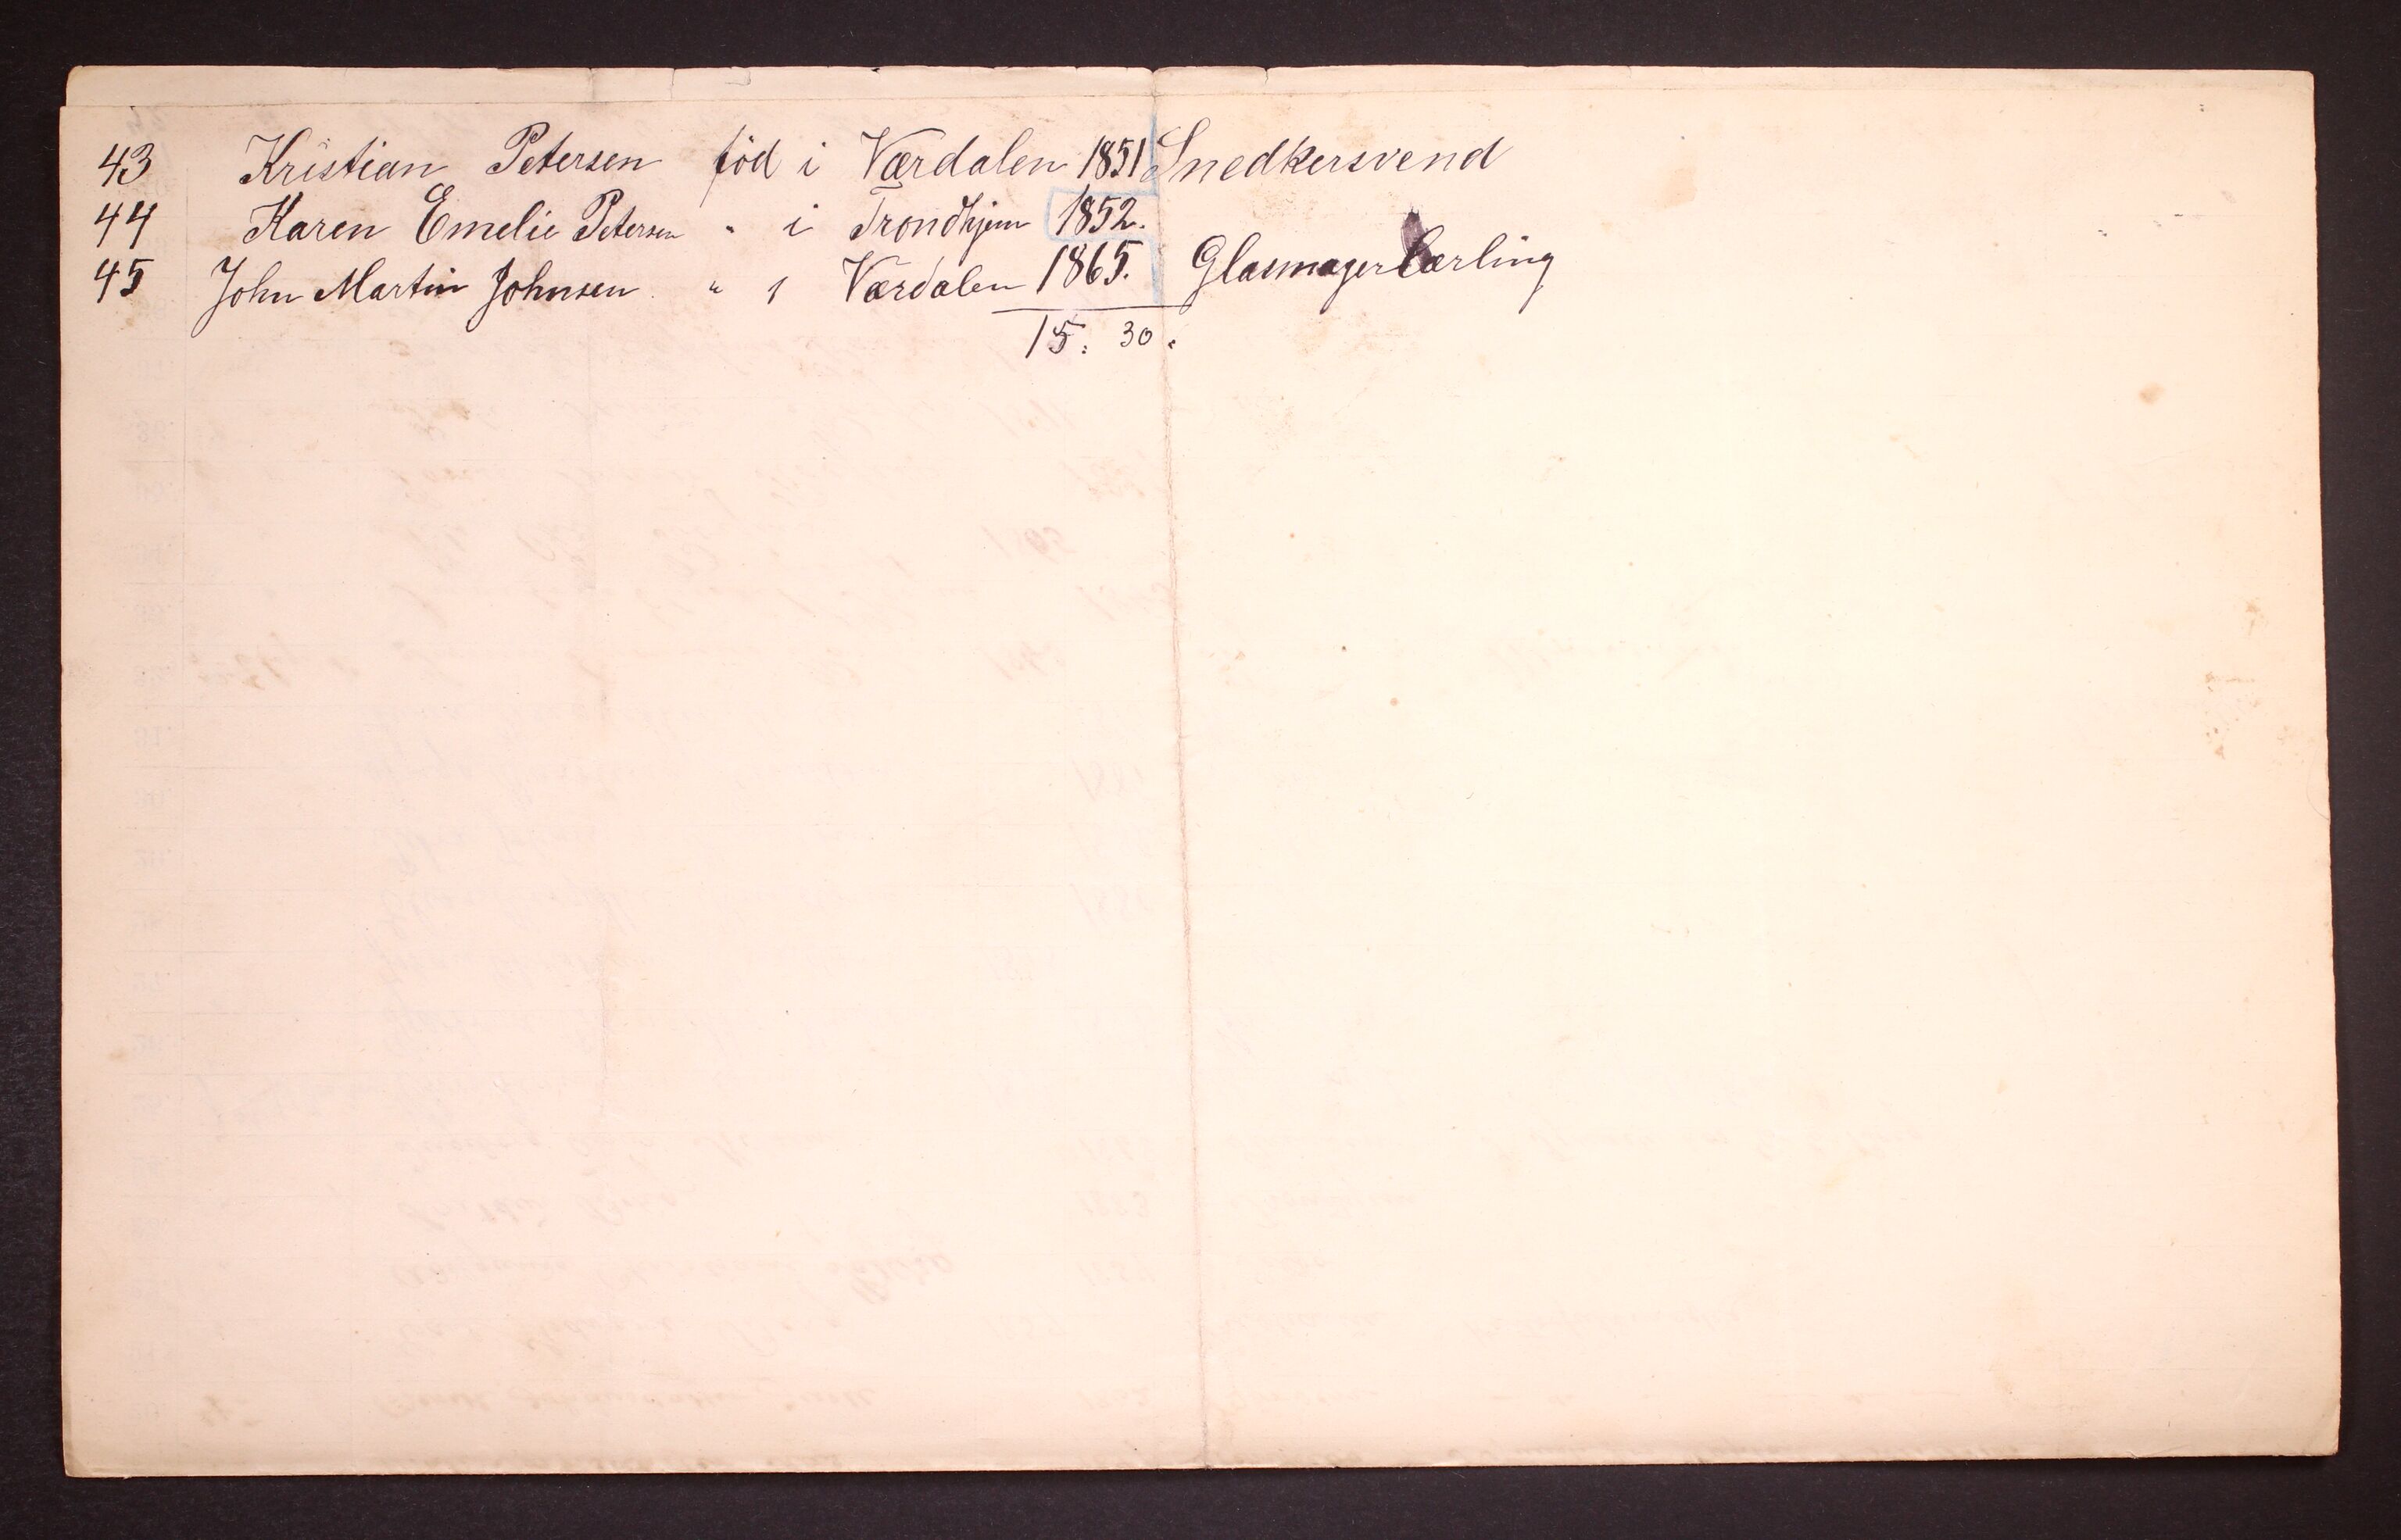 43 Kristian Petersen föd i Værdalen 1851 Snedkersvend
44 Karen Emelie Petersen " i Trondhjem 1852.
45 John Martin Johnsen " i Værdalen 1865. Glasmagerlærling
15. 30.